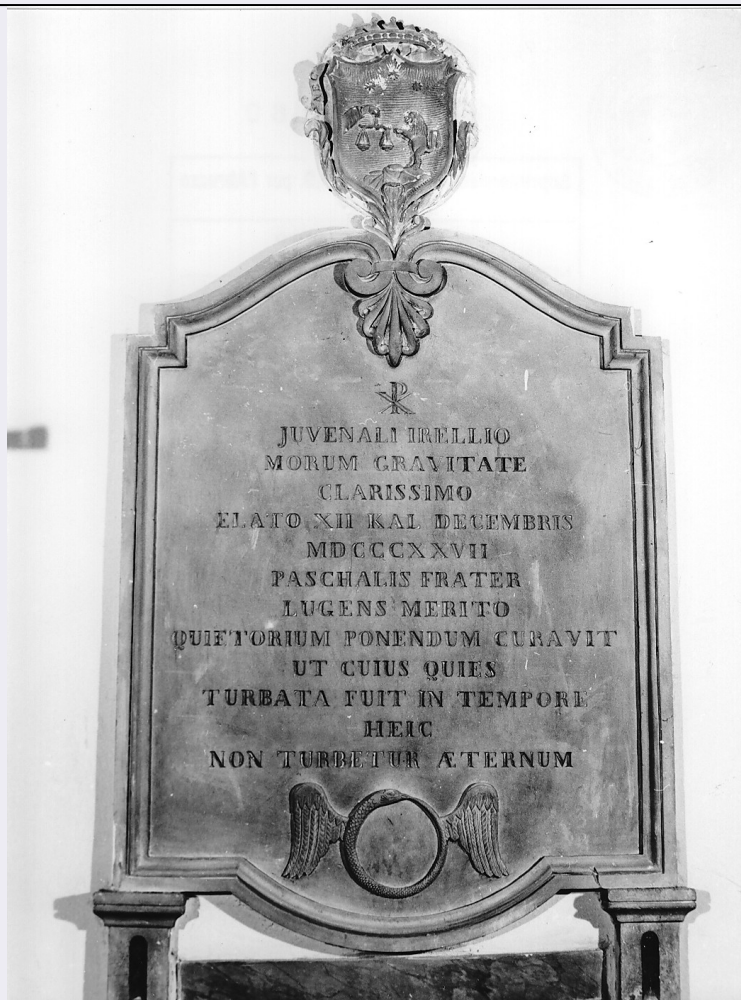 ☧
JUVENALI IRELLIO
MORUM GRAVITATE
CLARISSIMO
ELATO XII KAL DECEMBRIS
MDCCCXXVII
PASCHALIS FRATER
LUGENS MERITO
QUIETORIUM PONENDUM CURAVIT
UT CUIUS QUIES
TURBATA FUIT IN TEMPORE
HEIC
NON TURBETUR ÆTERNUM